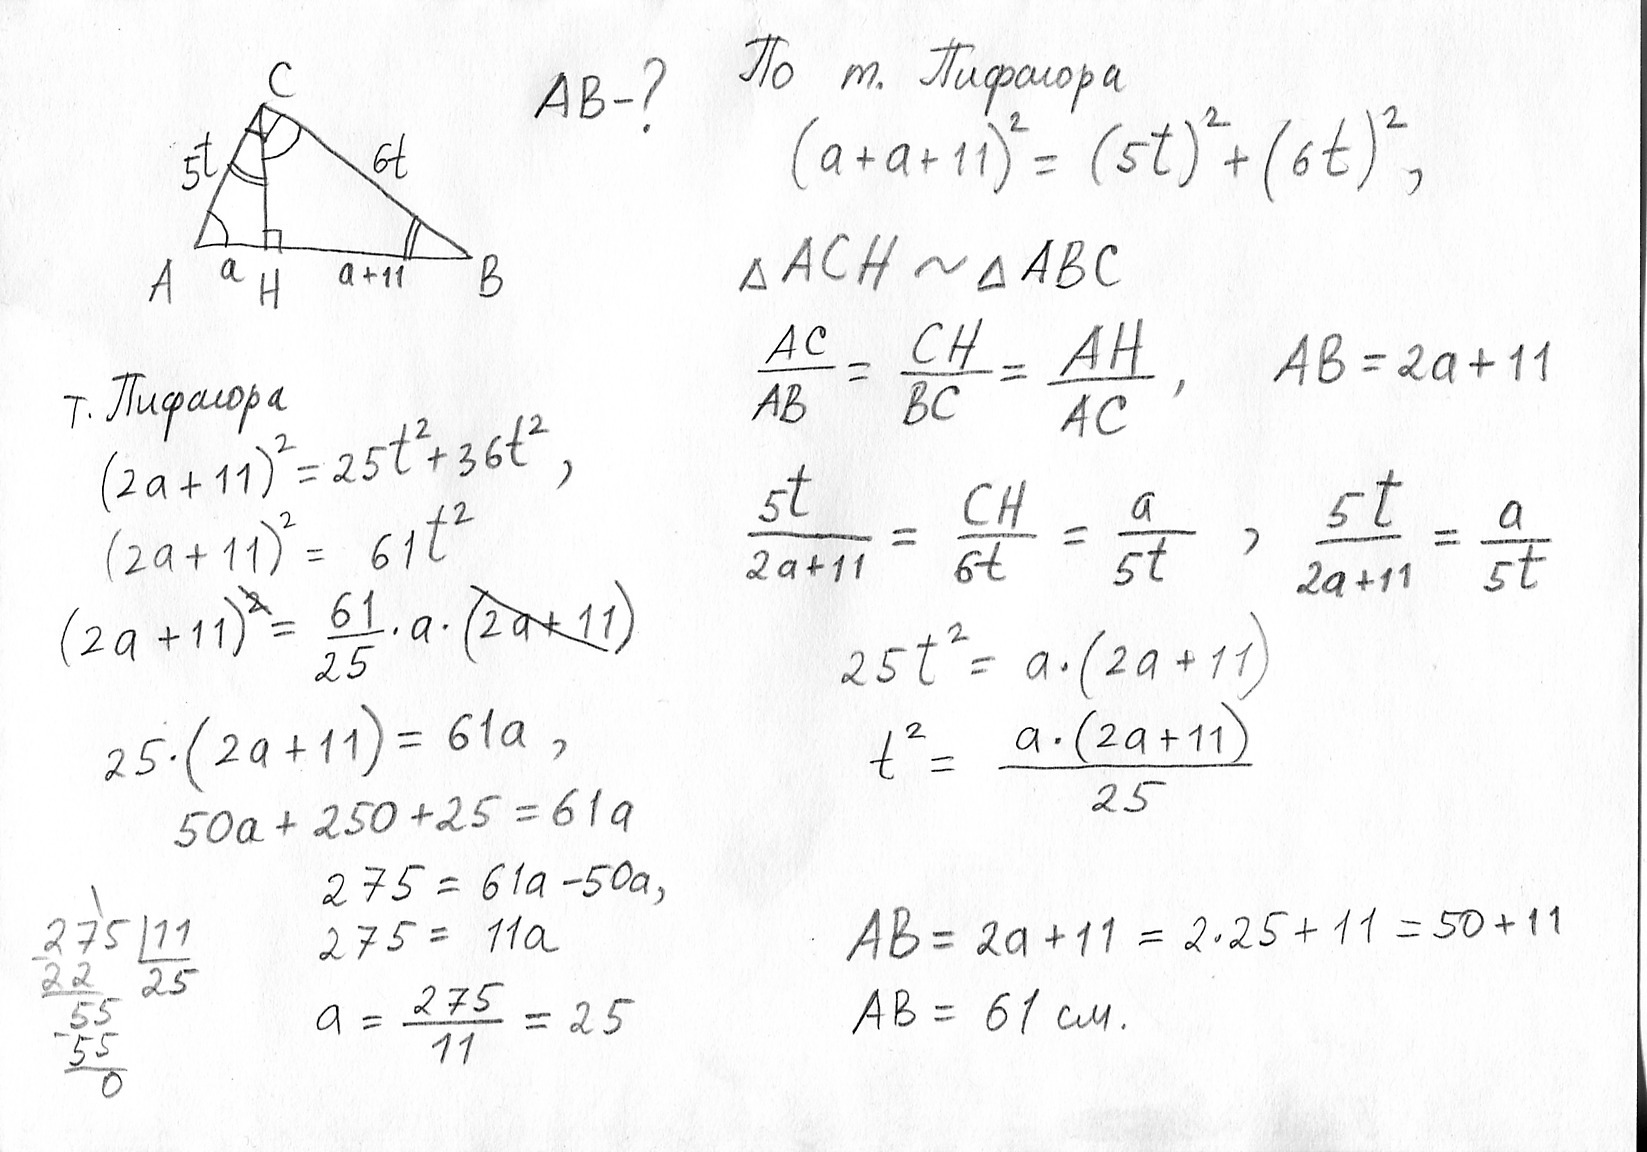 C
AB-?
5t
6t
A
a
H
a+11
B
По т. Пифагора
(a+a+11)² = (5t)² + (6t)²,
△ACH ~ △ABC
AC/AB = CH/BC = AH/AC, AB = 2a+11
5t/(2a+11) = CH/6t = a/5t, 5t/(2a+11) = a/5t
25t² = a·(2a+11)
t² = a·(2a+11)/25
т. Пифагора
(2a+11)² = 25t²+36t²,
(2a+11)² = 61t²
(2a+11)² = 61/25·a·(2a+11)
25·(2a+11) = 61a,
50a+250+25 = 61a
275 = 61a-50a,
275 = 11a
a = 275/11 = 25
275 11
22 25
55
-55
0
AB = 2a+11 = 2·25+11 = 50+11
AB = 61 см.